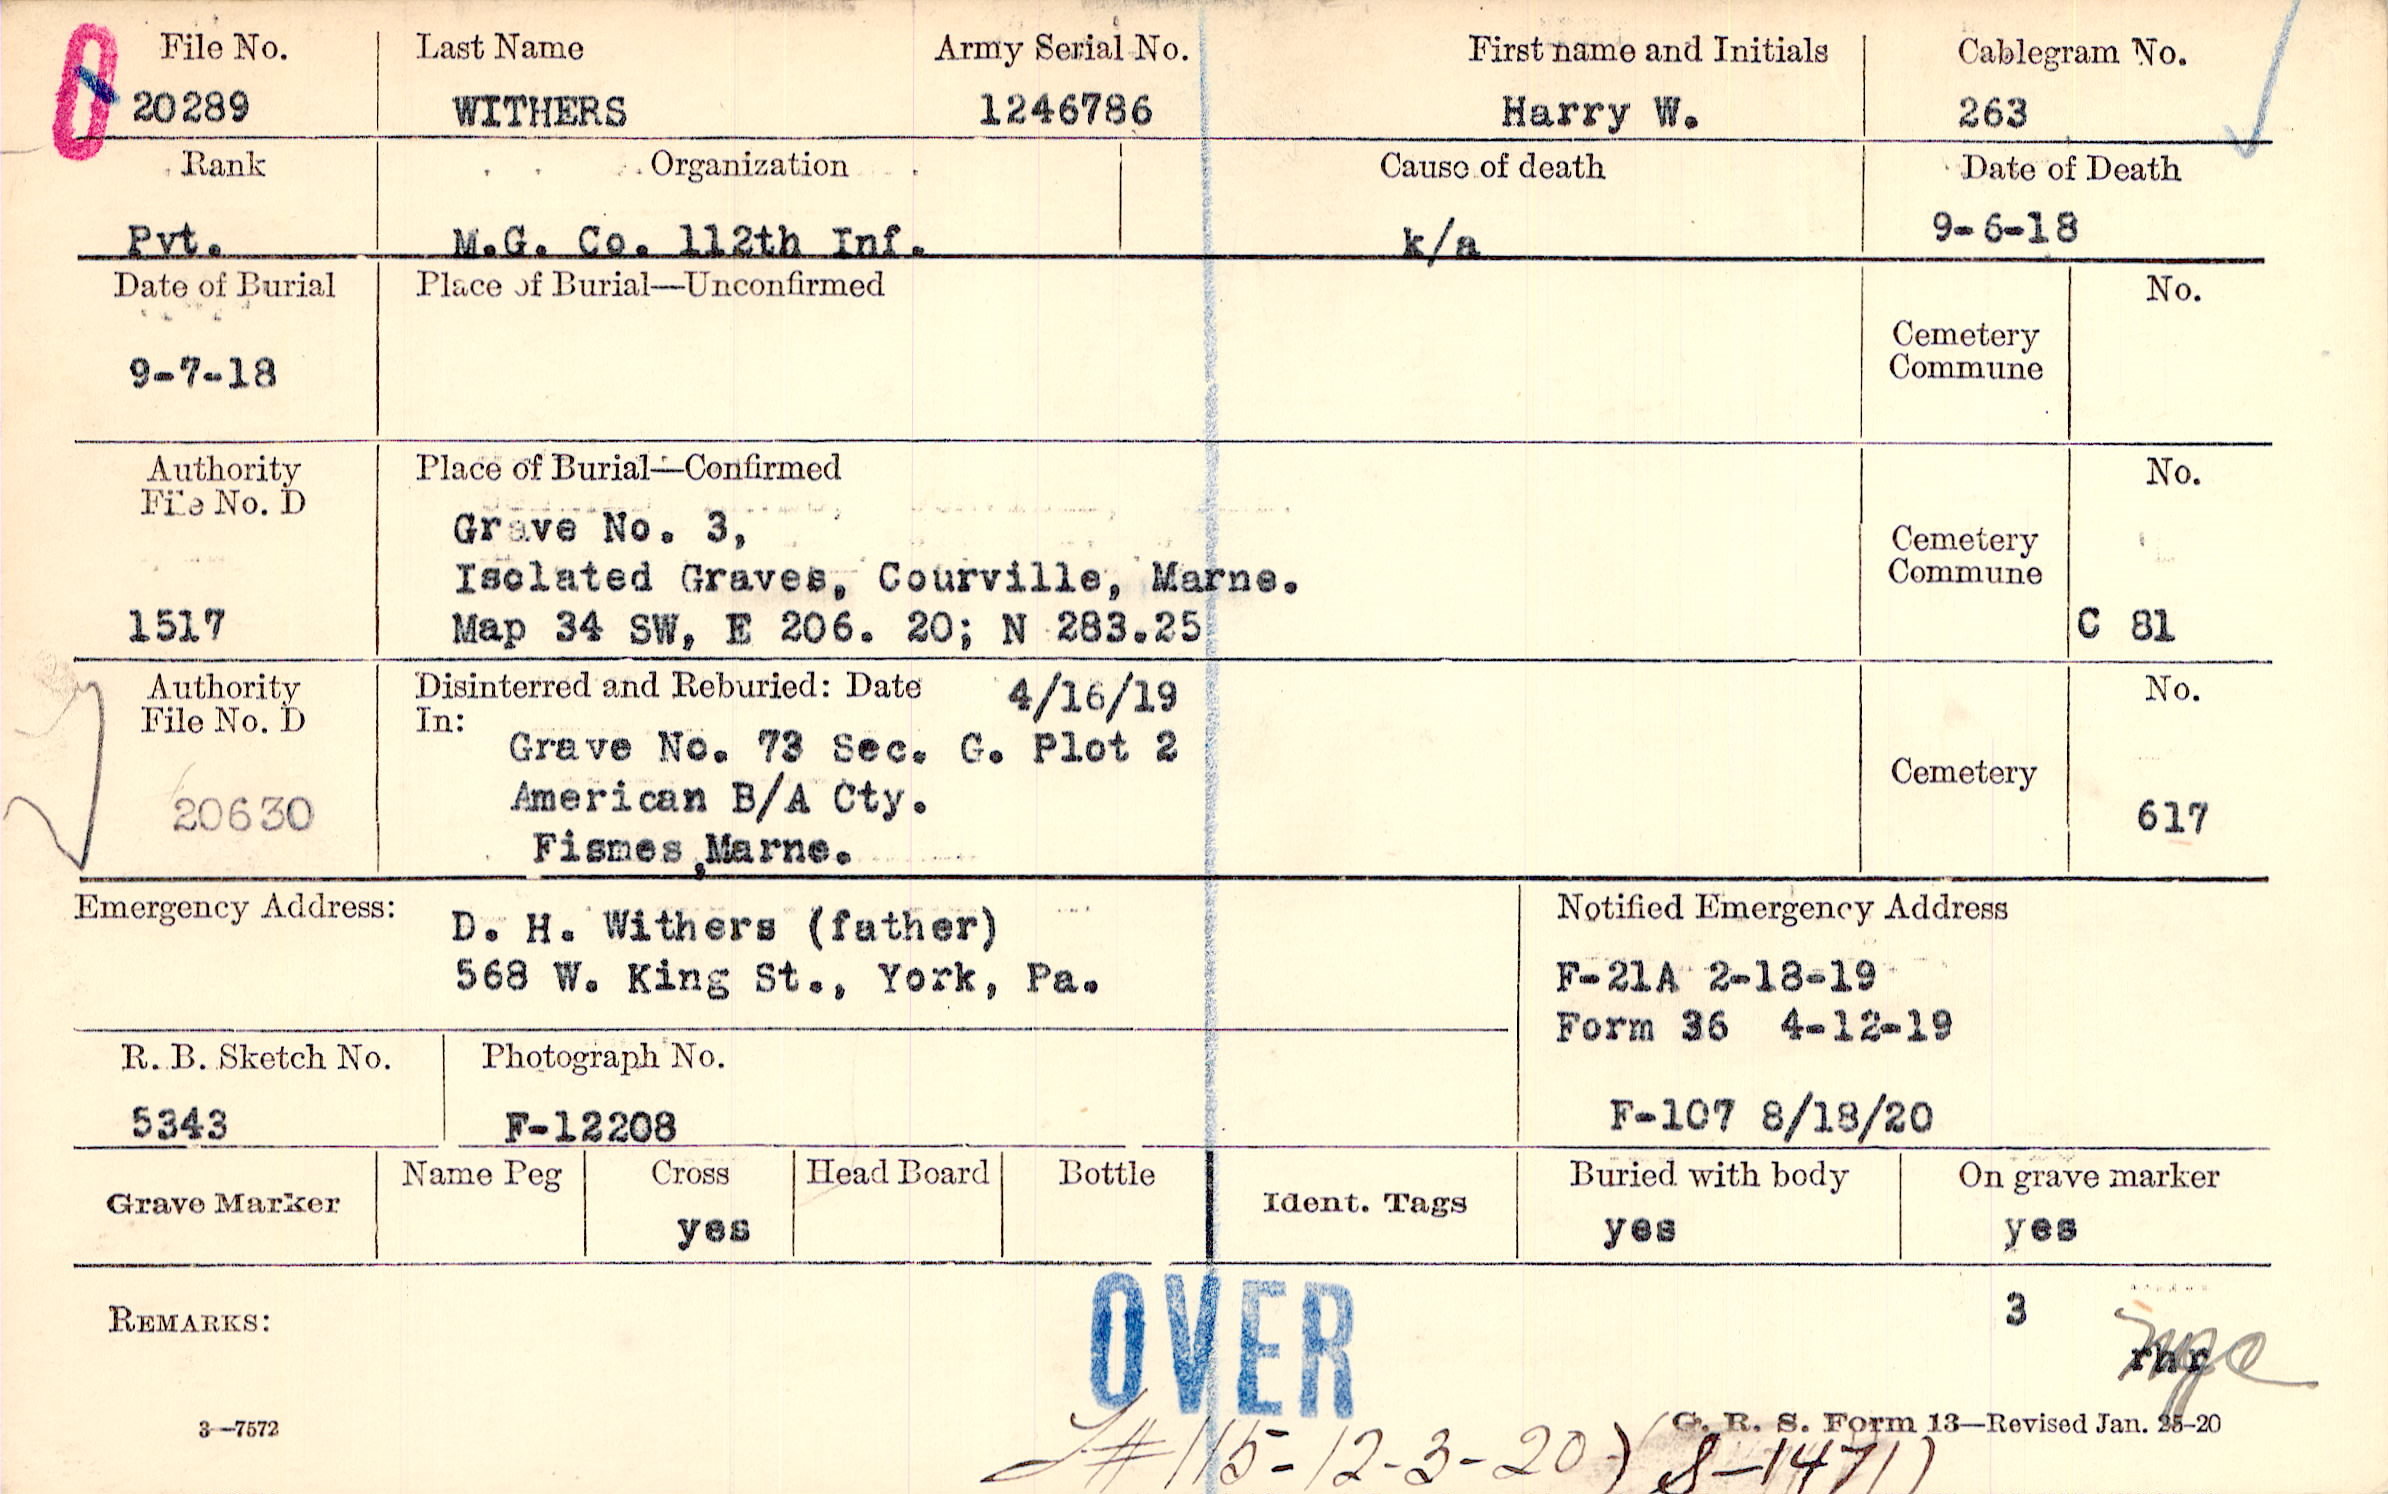 File No. Last Name Army Serial No. First name and Initials Cablegram No.
20289 WITHERS 1246786 Harry W. 263
Rank Organization Cause of death Date of Death
Pvt. M.G. Co. 112th Inf. k/a 9-6-18
Date of Burial Place of Burial—Unconfirmed No.
Cemetery
Commune
9-7-18
Authority Place of Burial—Confirmed No.
File No. D
Grave No. 3,
Cemetery
Isolated Graves, Courville, Marne.
Commune
1517 Map 34 SW, E 206. 20; N 283.25 C 81
Authority Disinterred and Reburied: Date 4/16/19 No.
File No. D In:
Grave No. 73 Sec. G. Plot 2
Cemetery
20630 American B/A Cty. 617
Fismes, Marne.
Emergency Address: D. H. Withers (father) Notified Emergency Address
568 W. King St., York, Pa. F-21A 2-18-19
Form 36 4-12-19
R. B. Sketch No. Photograph No.
5343 F-12208 F-107 8/18/20
Grave Marker Name Peg Cross Head Board Bottle Ident. Tags Buried with body On grave marker
yes yes yes
OVER
REMARKS: 3
3—7572 G. R. S. Form 13—Revised Jan. 25-20
#115-12-3-20) S-1471)